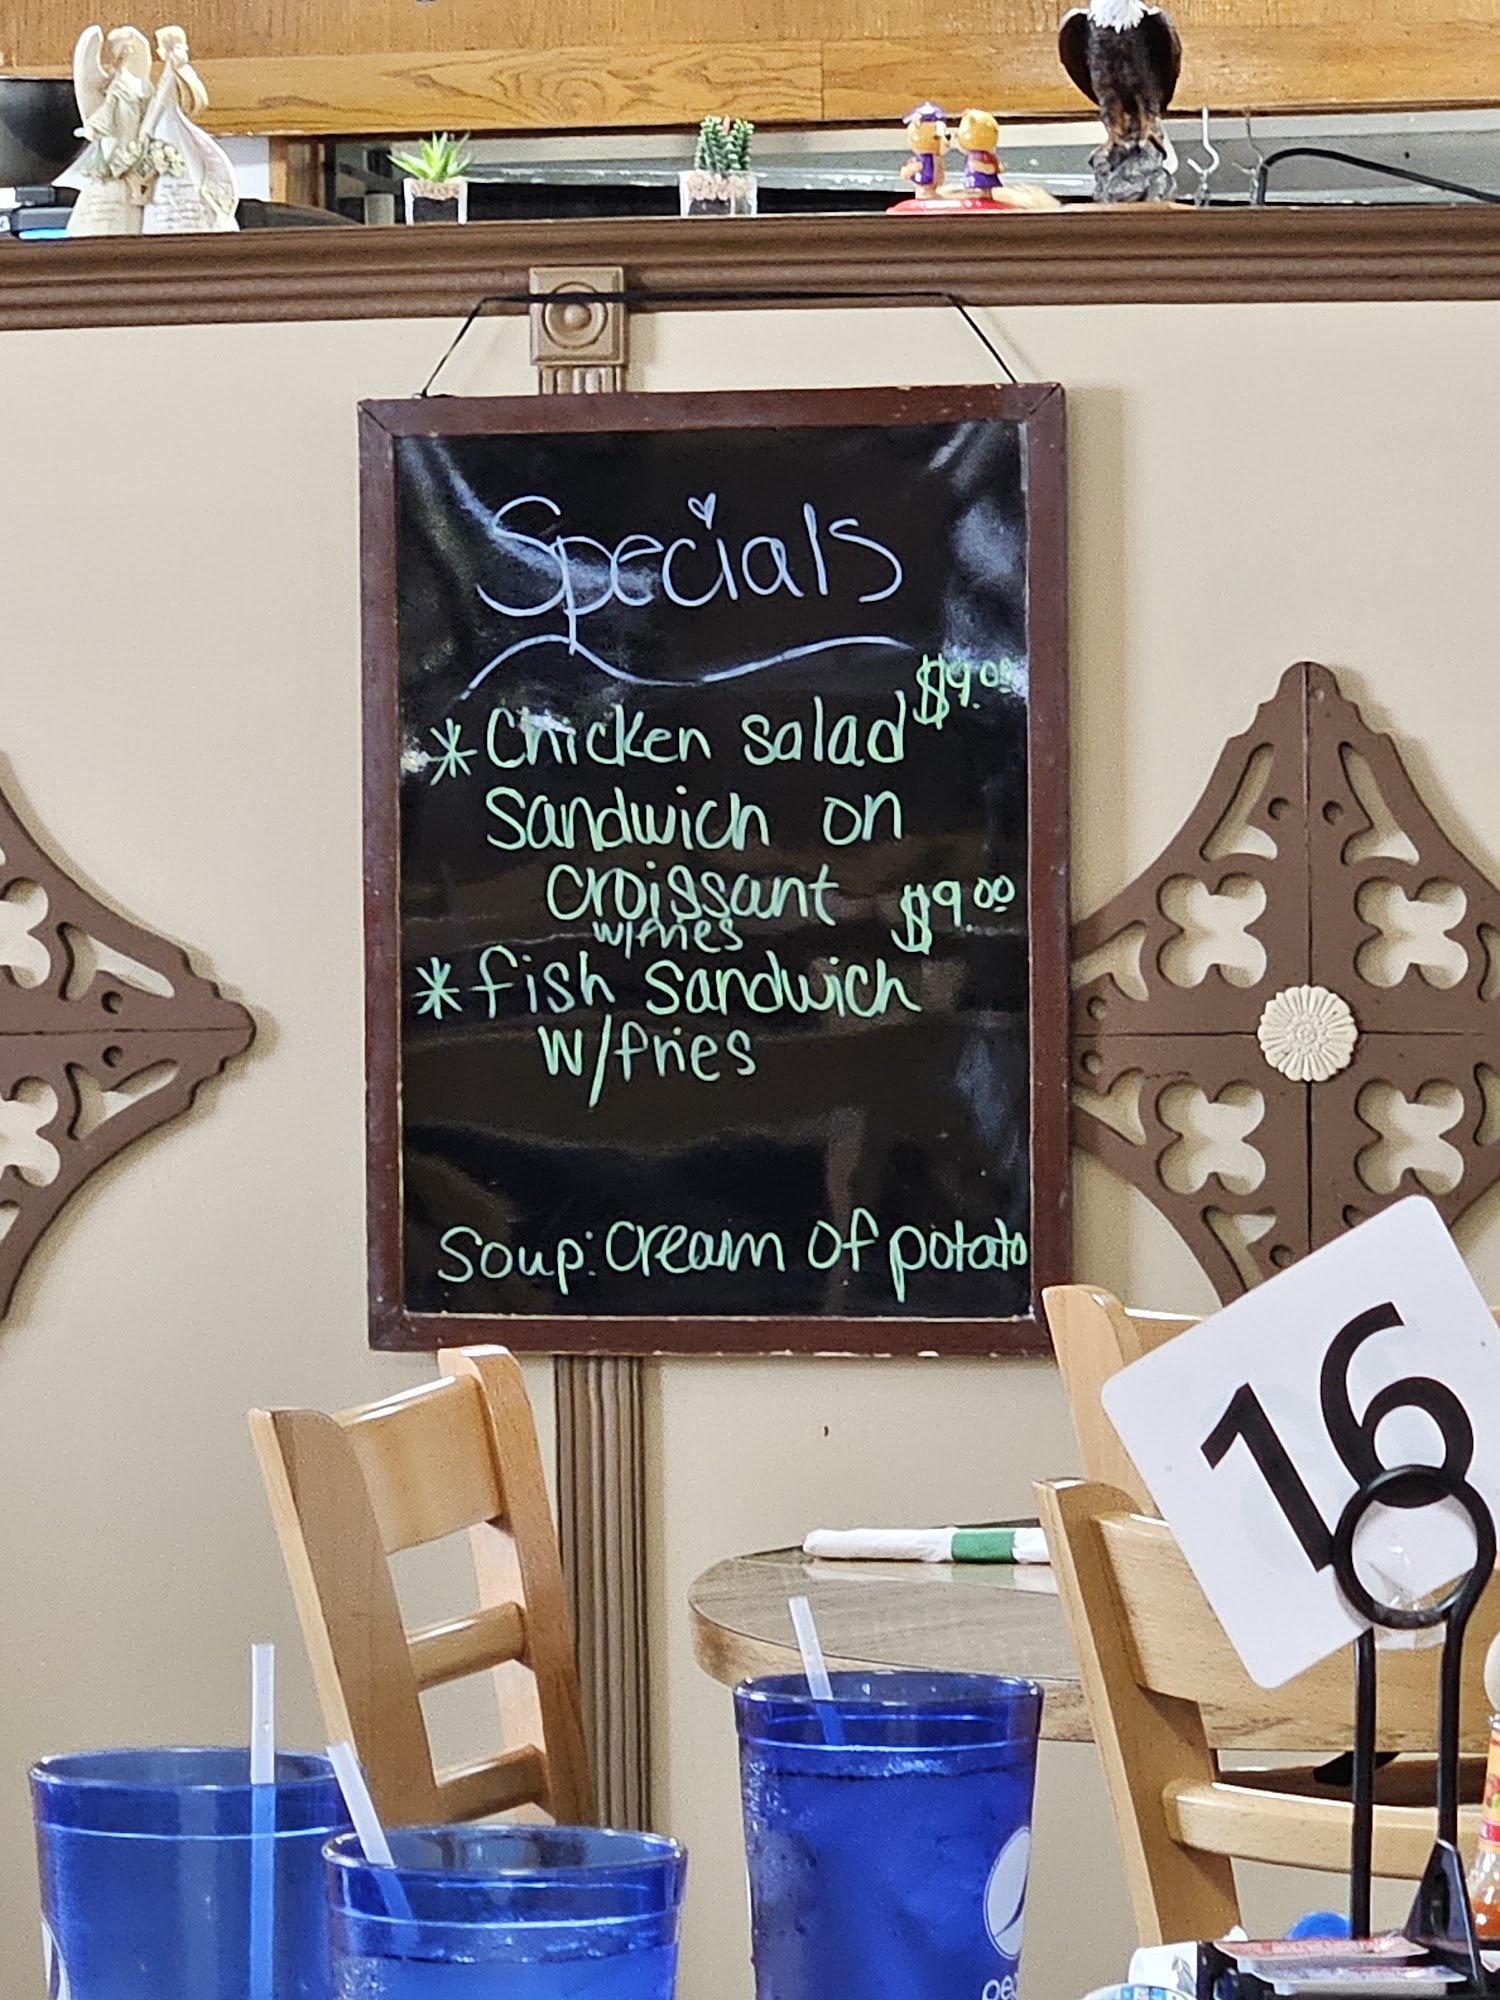 Specials
$9.00
*Chicken salad
Sandwich on
Croissant
w/fries
$9.00
*fish sandwich
w/fries
Soup: Cream of potato
16